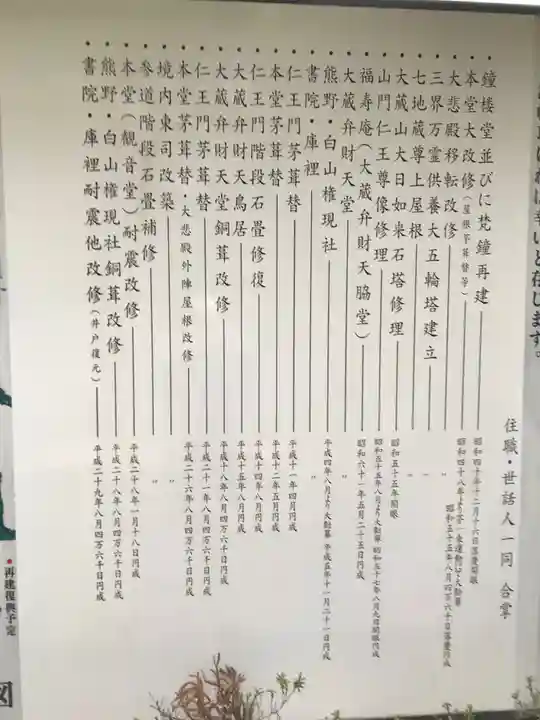 住職・世話人一同 合掌
・鐘楼堂並びに梵鐘再建 昭和四十年十二月十六日落慶開眼
・本堂大改修(屋根下葺替等)
・大悲殿移転改修
・三界万霊供養大五輪塔建立 〃
・七地蔵尊上屋根 〃
・大蔵山大日如来石塔修理 昭和五十五年開眼
・山門仁王尊像修理
・福寿庵(大蔵弁財天脇堂) 昭和六十一年五月二十五日円成
・大蔵弁財天堂
・熊野・白山権現社 平成四年八月より大勧募 平成五年十一月二十一日円成
・書院・庫裡 〃
・仁王門茅葺替 平成十一年四月円成
・本堂茅葺替 平成十二年五月円成
・仁王門階段石畳修復 平成十四年八月円成
・大蔵弁財天鳥居 平成十五年八月円成
・大蔵弁財天堂銅葺改修 平成十八年八月四万六千日円成
・仁王門茅葺替 平成二十一年八月四万六千日円成
・本堂茅葺替・大悲殿外陣屋根改修 平成二十六年八月四万六千日円成
・境内東司改築 〃
・参道階段石畳補修 〃
・本堂(観音堂)耐震改修 平成二十八年一月十八日円成
・熊野・白山権現社銅葺改修 平成二十八年八月四万六千日円成
・書院・庫裡耐震他改修(井戸復元) 平成二十九年八月四万六千日円成
・再建復興予定
図